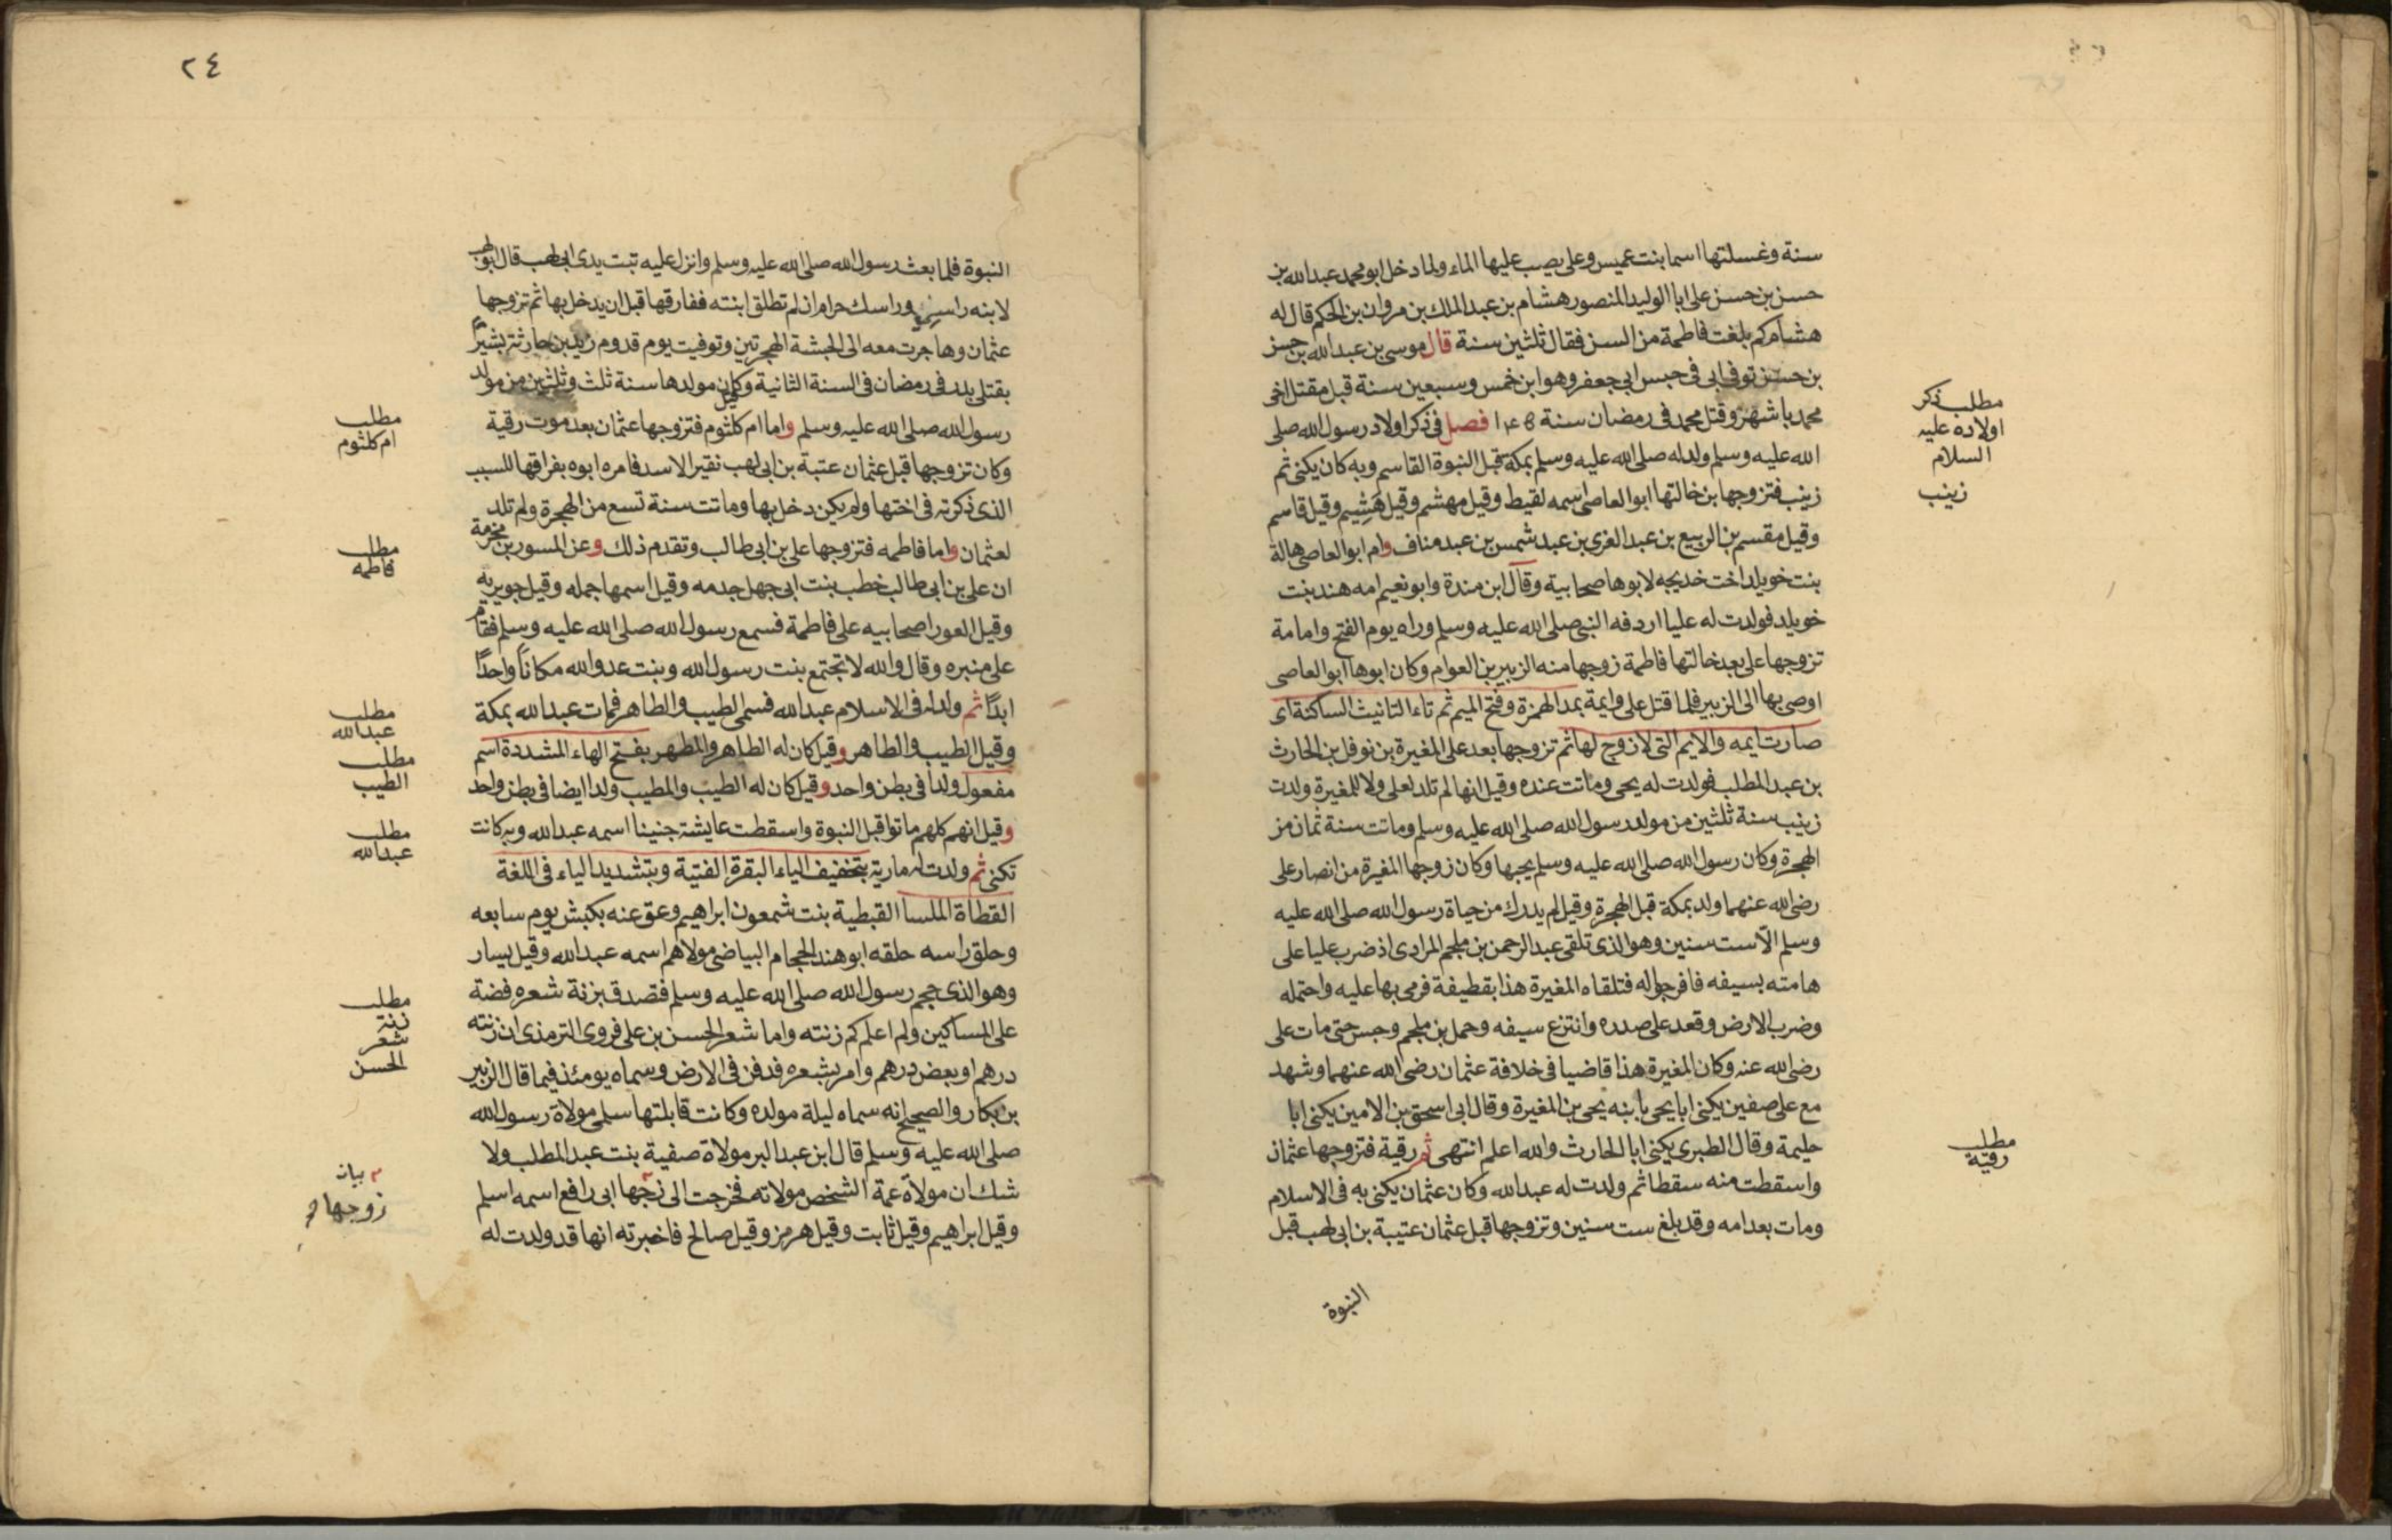 سنة وغسلتها اسما بنت عميس وعلى يصب عليها الماء ولما دخل ابو محمد عبدالله بن
حسن بن حسن على ابا الوليد المنصور هشام بن عبد الملك بن مروان بن الحكم قال له
هشام كم بلغت فاطمة من السن فقال ثلثين سنة قال موسى بن عبدالله بن حسن
بن حسن توفى ابى فى حبس ابى جعفر وهو ابن خمس وسبعين سنة قبل مقتل اخى
محمد باشهر وقتل محمد فى رمضان سنة فصل فى ذكر اولاد رسول الله صلى
مطلب ذكر
اولاده عليه
السلام
الله عليه وسلم ولد له صلى الله عليه وسلم بمكة قبل النبوة القاسم وبه كان يكنى ثم
زينب فتزوجها بن خالتها ابو العاصى اسمه لقيط وقيل مهشم وقيل هَشِيم وقيل قاسم
زينب
وقيل مقسم بن الربيع بن عبد العزى بن عبد شمس بن عبد مناف وام ابو العاصى هالة
بنت خويلد اخت خديجه لابوها صحابية وقال ابن مندة وابو نعيم امه هند بنت
خويلد فولدت له عليا اردفه النبى صلى الله عليه وسلم وراه يوم الفتح وامامة
تزوجها على بعد خالتها فاطمة زوجها منه الزبير بن العوام وكان ابوها ابو العاصى
اوصى بها الى الزبير فلما قتل على وايمة بمد الهمزة وفتح الميم ثم تاء التانيث الساكنة اى
صارت ايمه والايم التى لا زوج لها ثم تزوجها بعد على المغيرة بن نوفل بن الحارث
بن عبد المطلب فولدت له يحيى وماتت عنده وقيل انها لم تلد لعلى ولا للمغيرة ولدت
زينب سنة ثلثين من مولد رسول الله صلى الله عليه وسلم وماتت سنة ثمان من
الهجرة وكان رسول الله صلى الله عليه وسلم يحبها وكان زوجها المغيرة من انصار على
رضى الله عنهما ولد بمكة قبل الهجرة وقيل لم يدرك من حياة رسول الله صلى الله عليه
وسلم الّا ست سنين وهو الذى تلقى عبد الرحمن بن ملجم المرادى اذ ضرب عليا على
هامته بسيفه فافرجوا له فتلقاه المغيرة هذا بقطيفة فرمى بها عليه واحتمله
وضرب الارض وقعد على صدره وانتزع سيفه وحمل بن ملجم وحبس حتى مات على
رضى الله عنه وكان المغيرة هذا قاضيا فى خلافة عثمان رضى الله عنهما وشهد
مع على صفين يكنى ابا يحيى بابنه يحيى بن المغيرة وقال ابى اسحق بن الامين يكنى ابا
حليمة وقال الطبرى يكنى ابا الحارث والله اعلم انتهى ثم رقية فتزوجها عثمان
مطلب
رقية
واسقطت منه سقطا ثم ولدت له عبدالله وكان عثمان يكنى به فى الاسلام
ومات بعد امه وقد بلغ ست سنين وتزوجها قبل عثمان عتيبة بن ابى لهب قبل
النبوة
٢٤
النبوة فلما بعث رسول الله صلى الله عليه وسلم وانزل عليه تبت يدى ابى لهب قال ابو لهب
لابنه راسى وراسك حرام ان لم تطلق ابنته ففارقها قبل ان يدخل بها ثم تزوجها
عثمان وهاجرت معه الى الحبشة الهجرتين وتوفيت يوم قدوم زيد بن حارثة بشيرًا
بقتلى بدر فى رمضان فى السنة الثانية وكان مولدها سنة ثلث وثلثين من مولد
رسول الله صلى الله عليه وسلم واما ام كلثوم فتزوجها عثمان بعد موت رقية
مطلب
ام كلثوم
وكان تزوجها قبل عثمان عتبة بن ابى لهب نقير الاسد فامره ابوه بفراقها للسبب
الذى ذكرته فى اختها ولم يكن دخل بها وماتت سنة تسع من الهجرة ولم تلد
لعثمان واما فاطمه فتزوجها على بن ابى طالب وتقدم ذلك وعن المسور بن مخرمة
مطلب
فاطمه
ان على بن ابى طالب خطب بنت ابى جهل جدمه وقيل اسمها جمله وقيل جويريه
وقيل العورا صحابيه على فاطمة فسمع رسول الله صلى الله عليه وسلم فقام
على منبره وقال والله لا تجتمع بنت رسول الله وبنت عدو الله مكانًا واحدًا
ابدًا ثم ولد له فى الاسلام عبدالله فسمى الطيب والطاهر فمات عبدالله بمكة
مطلب
عبدالله
وقيل الطيب والطاهر وقيل كان له الطاهر والمطهر بفتح الهاء المشددة اسم
مطلب
الطيب
مفعول ولدا فى بطن واحد وقيل كان له الطيب والمطيب ولدا ايضا فى بطن واحد
وقيل انهم كلهم ماتوا قبل النبوة واسقطت عايشة جنينا اسمه عبدالله وبه كانت
مطلب
عبدالله
تكنى ثم ولدت له مارية بتخفيف الياء البقرة الفتية وبتشديد الياء فى اللغة
القطاة الملسا القبطية بنت شمعون ابراهيم وعق عنه بكبش يوم سابعه
وحلق راسه حلقه ابو هند الحجام البياضى مولاهم اسمه عبدالله وقيل يسار
وهو الذى حجم رسول الله صلى الله عليه وسلم فتصدق بزنة شعره فضة
مطلب
زنة
شعر
الحسن
على المساكين ولم اعلم كم زنته واما شعر الحسن بن على فروى الترمذى ان زنته
درهم او بعض درهم وامر بشعره فدفن فى الارض وسماه يومئذ فيما قال الزبير
بن بكار والصحيح انه سماه ليلة مولده وكانت قابلتها سلمى مولاة رسول الله
صلى الله عليه وسلم قال ابن عبد البر مولاة صفية بنت عبد المطلب ولا
شك ان مولاة عمة الشخص مولاته فخرجت الى زوجها ابى رافع اسمه اسلم
بيان
زوجها
وقيل ابراهيم وقيل ثابت وقيل هرمز وقيل صالح فاخبرته انها قد ولدت له